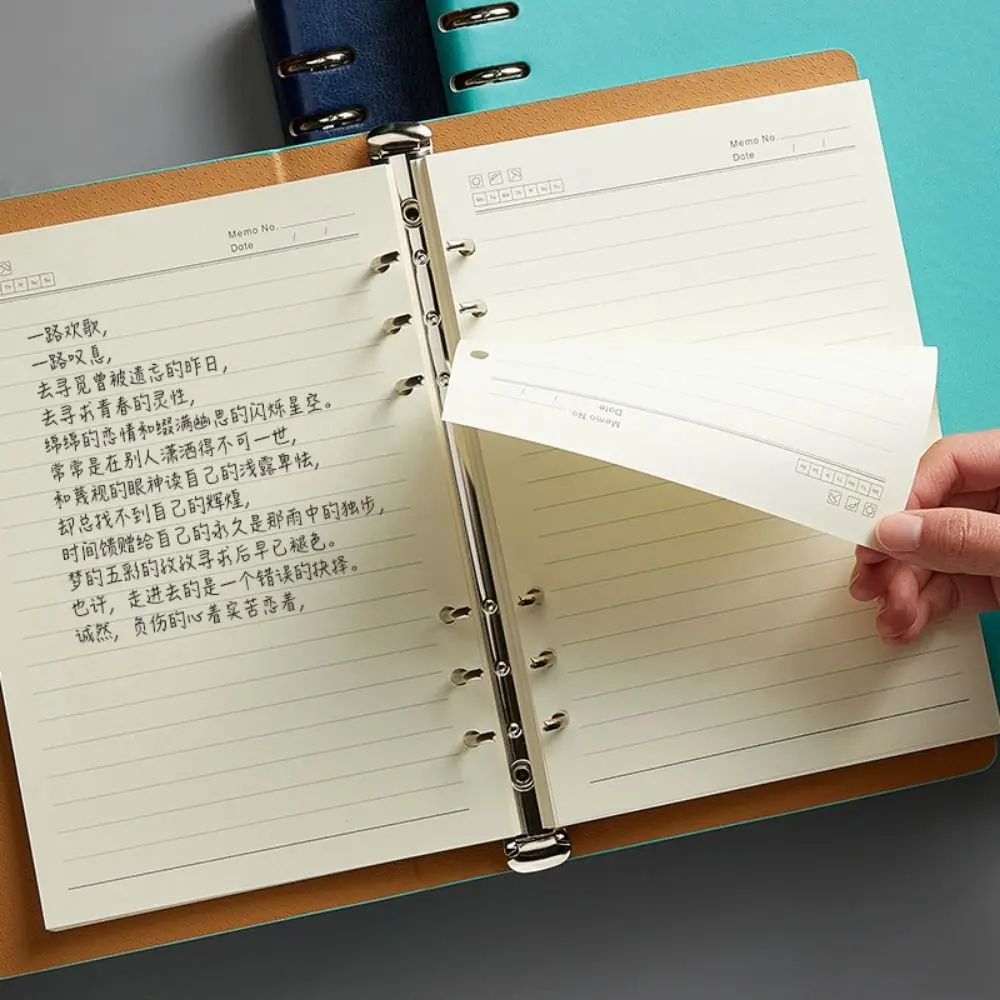 Memo No.
Date / /
一路欢歌，
一路叹息，
去寻觅曾被遗忘的昨日，
去寻求青春的灵性，
绵绵的恋情和缀满幽思的闪烁星空。
常常是在别人潇洒得不可一世，
和蔑视的眼神读自己的浅露卑怯，
却总找不到自己的辉煌，
时间馈赠给自己的永久是那雨中的独步，
梦的五彩的孜孜寻求后早已褪色。
也许，走进去的是一个错误的抉择。
诚然，负伤的心着实苦恋着，
Memo No.
Date / /
Mo Tu We Th Fr Sa Su
Memo No.
Date / /